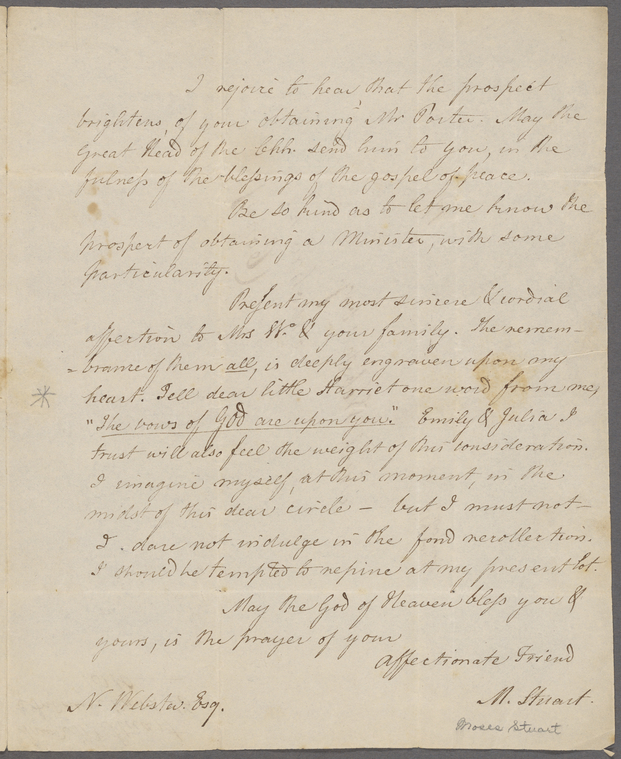 I rejoice to hear, that the prospect
brightens, of your obtaining Mr Porter. May the
Great Head of the Chh. send him to you, in the
fulness of the blessings of the gospel of peace.
Be so kind as to let me know the
prospect of obtaining a Minister, with some
particularity.
Present my most sincere & cordial
affection to Mrs W. & your family. The remem-
-brance of them all, is deeply engraven upon my
heart. Tell dear little Harriet one word from me,
"The vows of God are upon you." Emily & Julia I
trust will also feel the weight of this consideration.
I imagine myself, at this moment, in the
midst of this dear circle — but I must not —
I dare not indulge in the fond recollection.
I should be tempted to repine at my present lot.
May the God of Heaven bless you &
yours, is the prayer of your
Affectionate Friend
N. Webster. Esq.
M. Stuart.
Moses Stuart